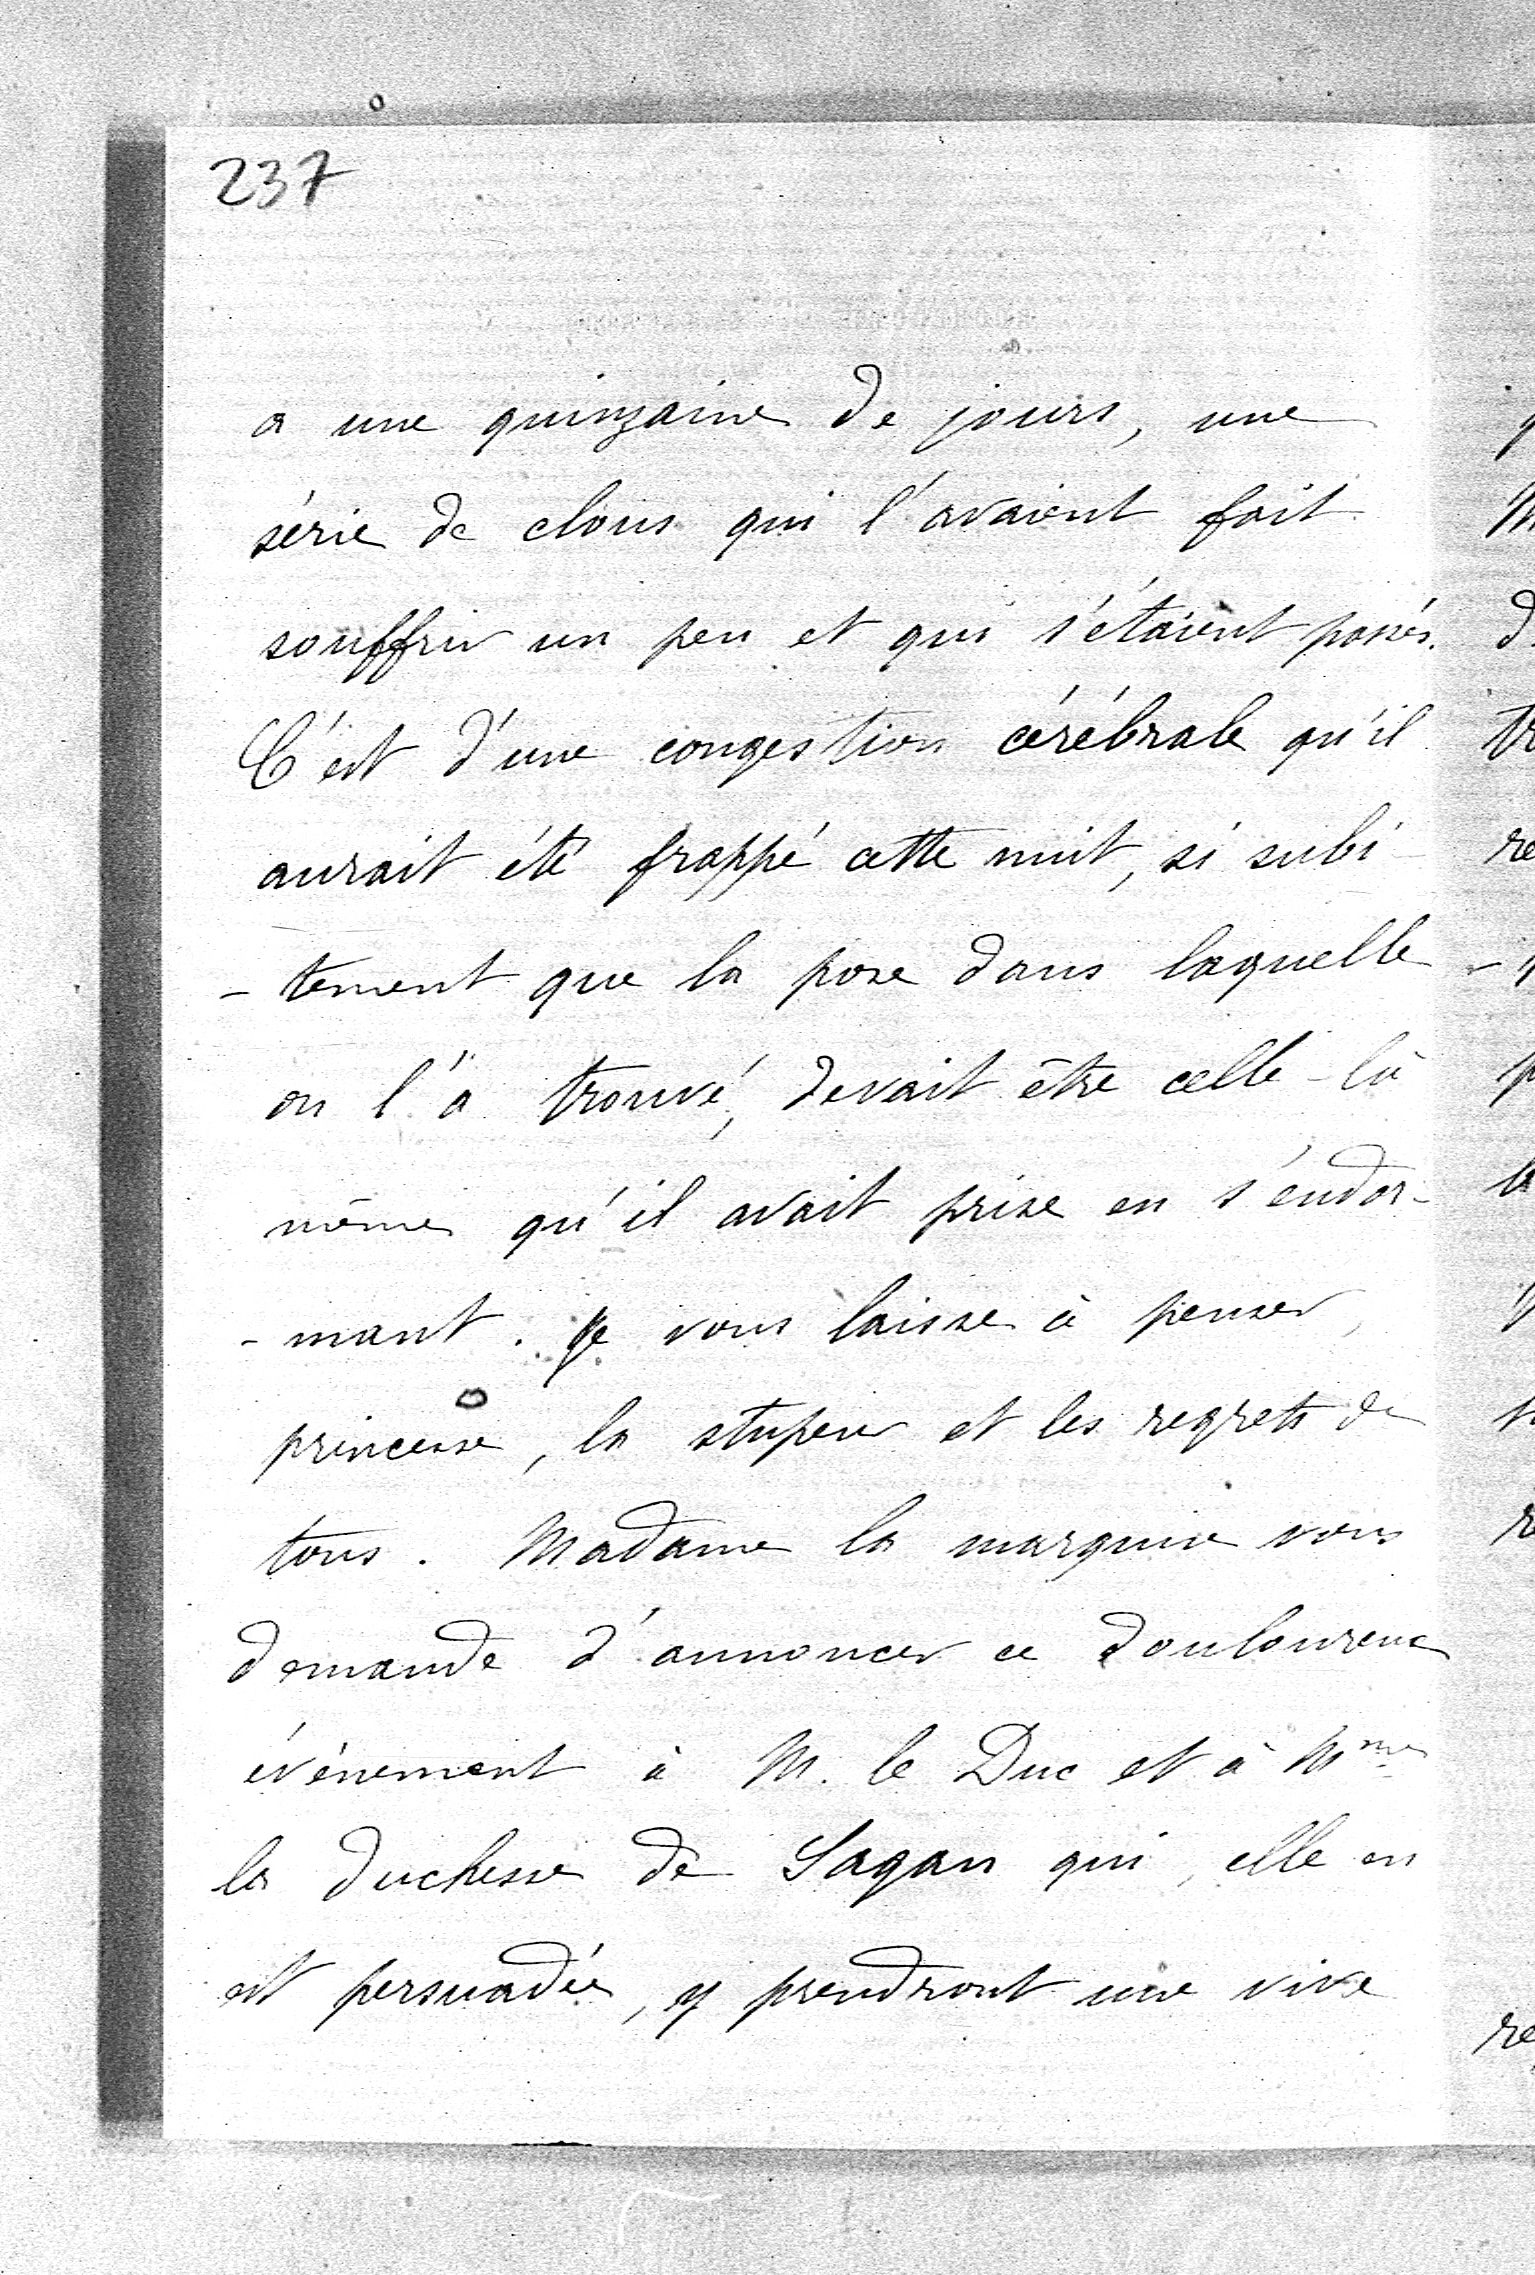 237
a une quinzaine de jours, une
série de clous qui l'avaient fait
souffrir un peu et qui s'étaient passés.
C'est d'une congestion cérébrale qu'il
aurait été frappé cette nuit, si subi-
- tement que la pose dans laquelle
on l'a trouvé, devait être celle-là
même qu'il avait prise en s'endor-
- mant. Je vous laisse à penser,
princesse, la stupeur et les regrets de
tous. Madame la marquise vous
demande d'annoncer ce douloureux
événement à M. le Duc et à Mme
la duchesse de Sagan qui, elle en
est persuadée, y prendront une vive